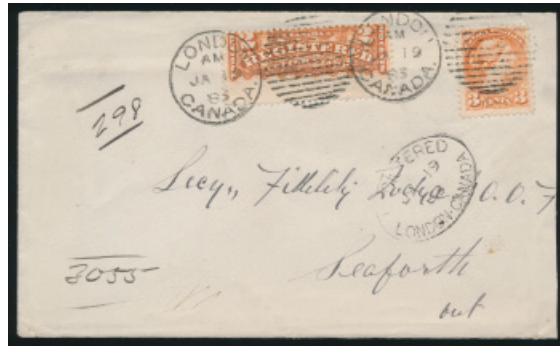 LONDON
AM
JA 19
85
CANADA
2 REGISTERED 2
LONDON
AM
19
85
CANADA
3 CENTS 3
298
REGISTERED
19
LONDON-CANADA
Secy, Fidelity Lodge I.O.O.F
3055
Seaforth
Ont